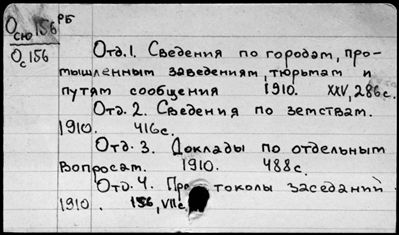 Осю156 РБ
Ос156
Отд.1. Сведения по городам, про-
мышленным заведениям, тюрьмам и
путям сообщения 1910. XXV, 286с.
Отд. 2. Сведения по земствам.
1910. 416с.
Отд. 3. Доклады по отдельным
вопросам. 1910. 488с.
Отд. 4. Протоколы заседаний.
1910. 156, VIIс.